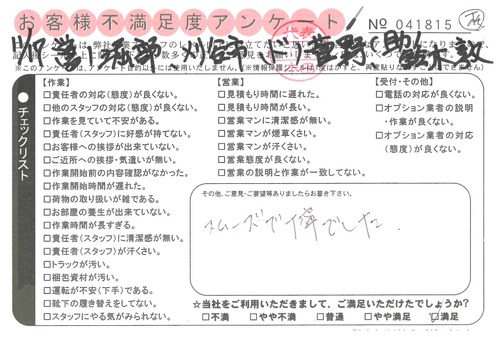 お客様不満足度アンケート
No 041815
チェックリスト
【作業】
□責任者の対応(態度)が良くない。
□他のスタッフの対応(態度)が良くない。
□作業を見ていて不安がある。
□責任者(スタッフ)に好感が持てない。
□お客様への挨拶が出来ていない。
□ご近所への挨拶・気遣いが無い。
□作業開始前の内容確認がなかった。
□作業開始時間が遅れた。
□荷物の取り扱いが雑である。
□お部屋の養生が出来ていない。
□作業時間が長すぎる。
□責任者(スタッフ)に清潔感が無い。
□責任者(スタッフ)が汗くさい。
□トラックが汚い。
□梱包資材が汚い。
□運転が不安(下手)である。
□靴下の履き替えをしてない。
□スタッフにやる気がみられない。
【営業】
□見積もり時間に遅れた。
□見積もり時間が長い。
□営業マンに清潔感が無い。
□営業マンが煙草くさい。
□営業マンが汗くさい。
□営業態度が良くない。
□営業の説明と作業が一致してない。
【受付・その他】
□電話の対応が良くない。
□オプション業者の説明
・作業が良くない。
□オプション業者の対応
(態度)が良くない。
その他、ご意見・ご要望等ありましたらお書き下さい。
スムーズで
でした
☆当社をご利用いただきまして、ご満足いただけたでしょうか?
□不満 □やや不満 □普通 □やや満足 ☑満足